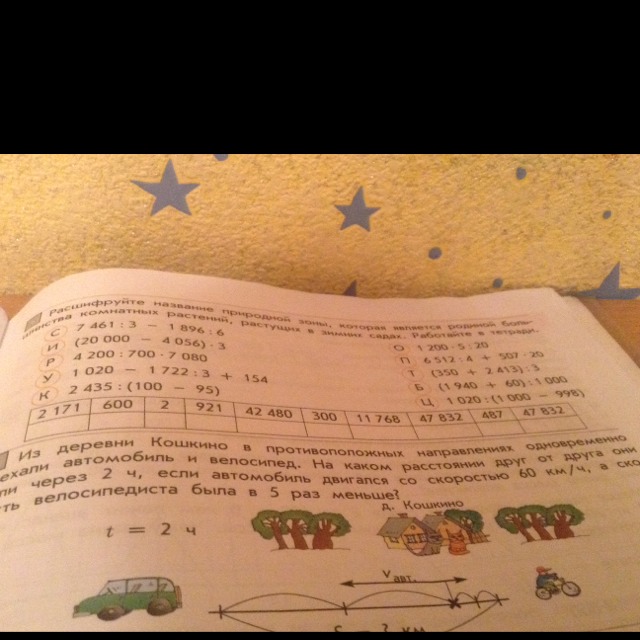 Расшифруйте название природной зоны, которая является родиной боль-
шинства комнатных растений, растущих в зимних садах. Работайте в тетради.
С 7 461 : 3 − 1 896 : 6
И (20 000 − 4 056) · 3
Р 4 200 : 700 · 7 080
У 1 020 − 1 722 : 3 + 154
К 2 435 : (100 − 95)
О 1 200 · 5 : 20
П 6 512 : 4 + 507 · 20
Т (350 + 2 413) : 3
Б (1 940 + 60) : 1 000
Ц 1 020 : (1 000 − 998)
2 171 600 2 921 42 480 300 11 768 47 832 487 47 832
Из деревни Кошкино в противоположных направлениях одновременно
ехали автомобиль и велосипед. На каком расстоянии друг от друга они
ли через 2 ч, если автомобиль двигался со скоростью 60 км/ч, а ско
ть велосипедиста была в 5 раз меньше?
д. Кошкино
t = 2 ч
v авт.
s = ? км